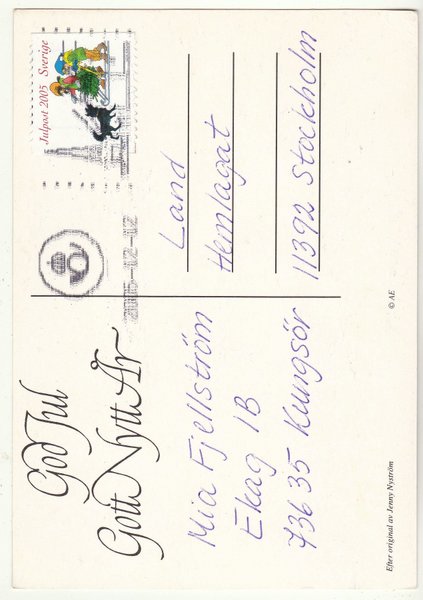 God Jul
Gott Nytt År
Mia Fjellström
Ekag 1B
73635 Kungsör
Efter original av Jenny Nyström
Julpost 2005 Sverige
2005-12-12
Land
Hemlagat
11392 Stockholm
© AE